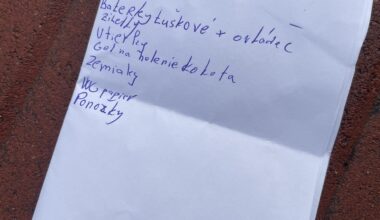 Baterky tuškové + ovládač
žiletky
Utierky
Gel na holenie kokota
Zemiaky
WC papier
Ponožky